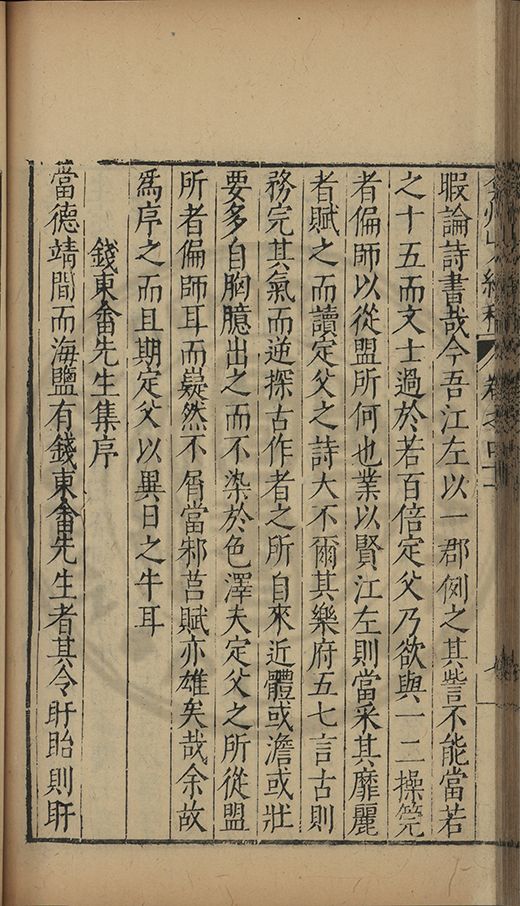 暇論詩書哉今吾江左以一郡例之其訾不能當若
之十五而文士過於若百倍定父乃欲與一二操觚
者偏師以從盟所何也業以賢江左則當采其靡麗
者賦之而讀定父之詩大不爾其樂府五七言古則
務完其氣而逆探古作者之所自來近體或澹或壯
要多自胸臆出之而不染於色澤夫定父之所從盟
所者偏師耳而嶷然不屑當邾莒賦亦雄矣哉余故
爲序之而且期定父以異日之牛耳
錢東畬先生集序
當德靖間而海鹽有錢東畬先生者其令盱眙則盱